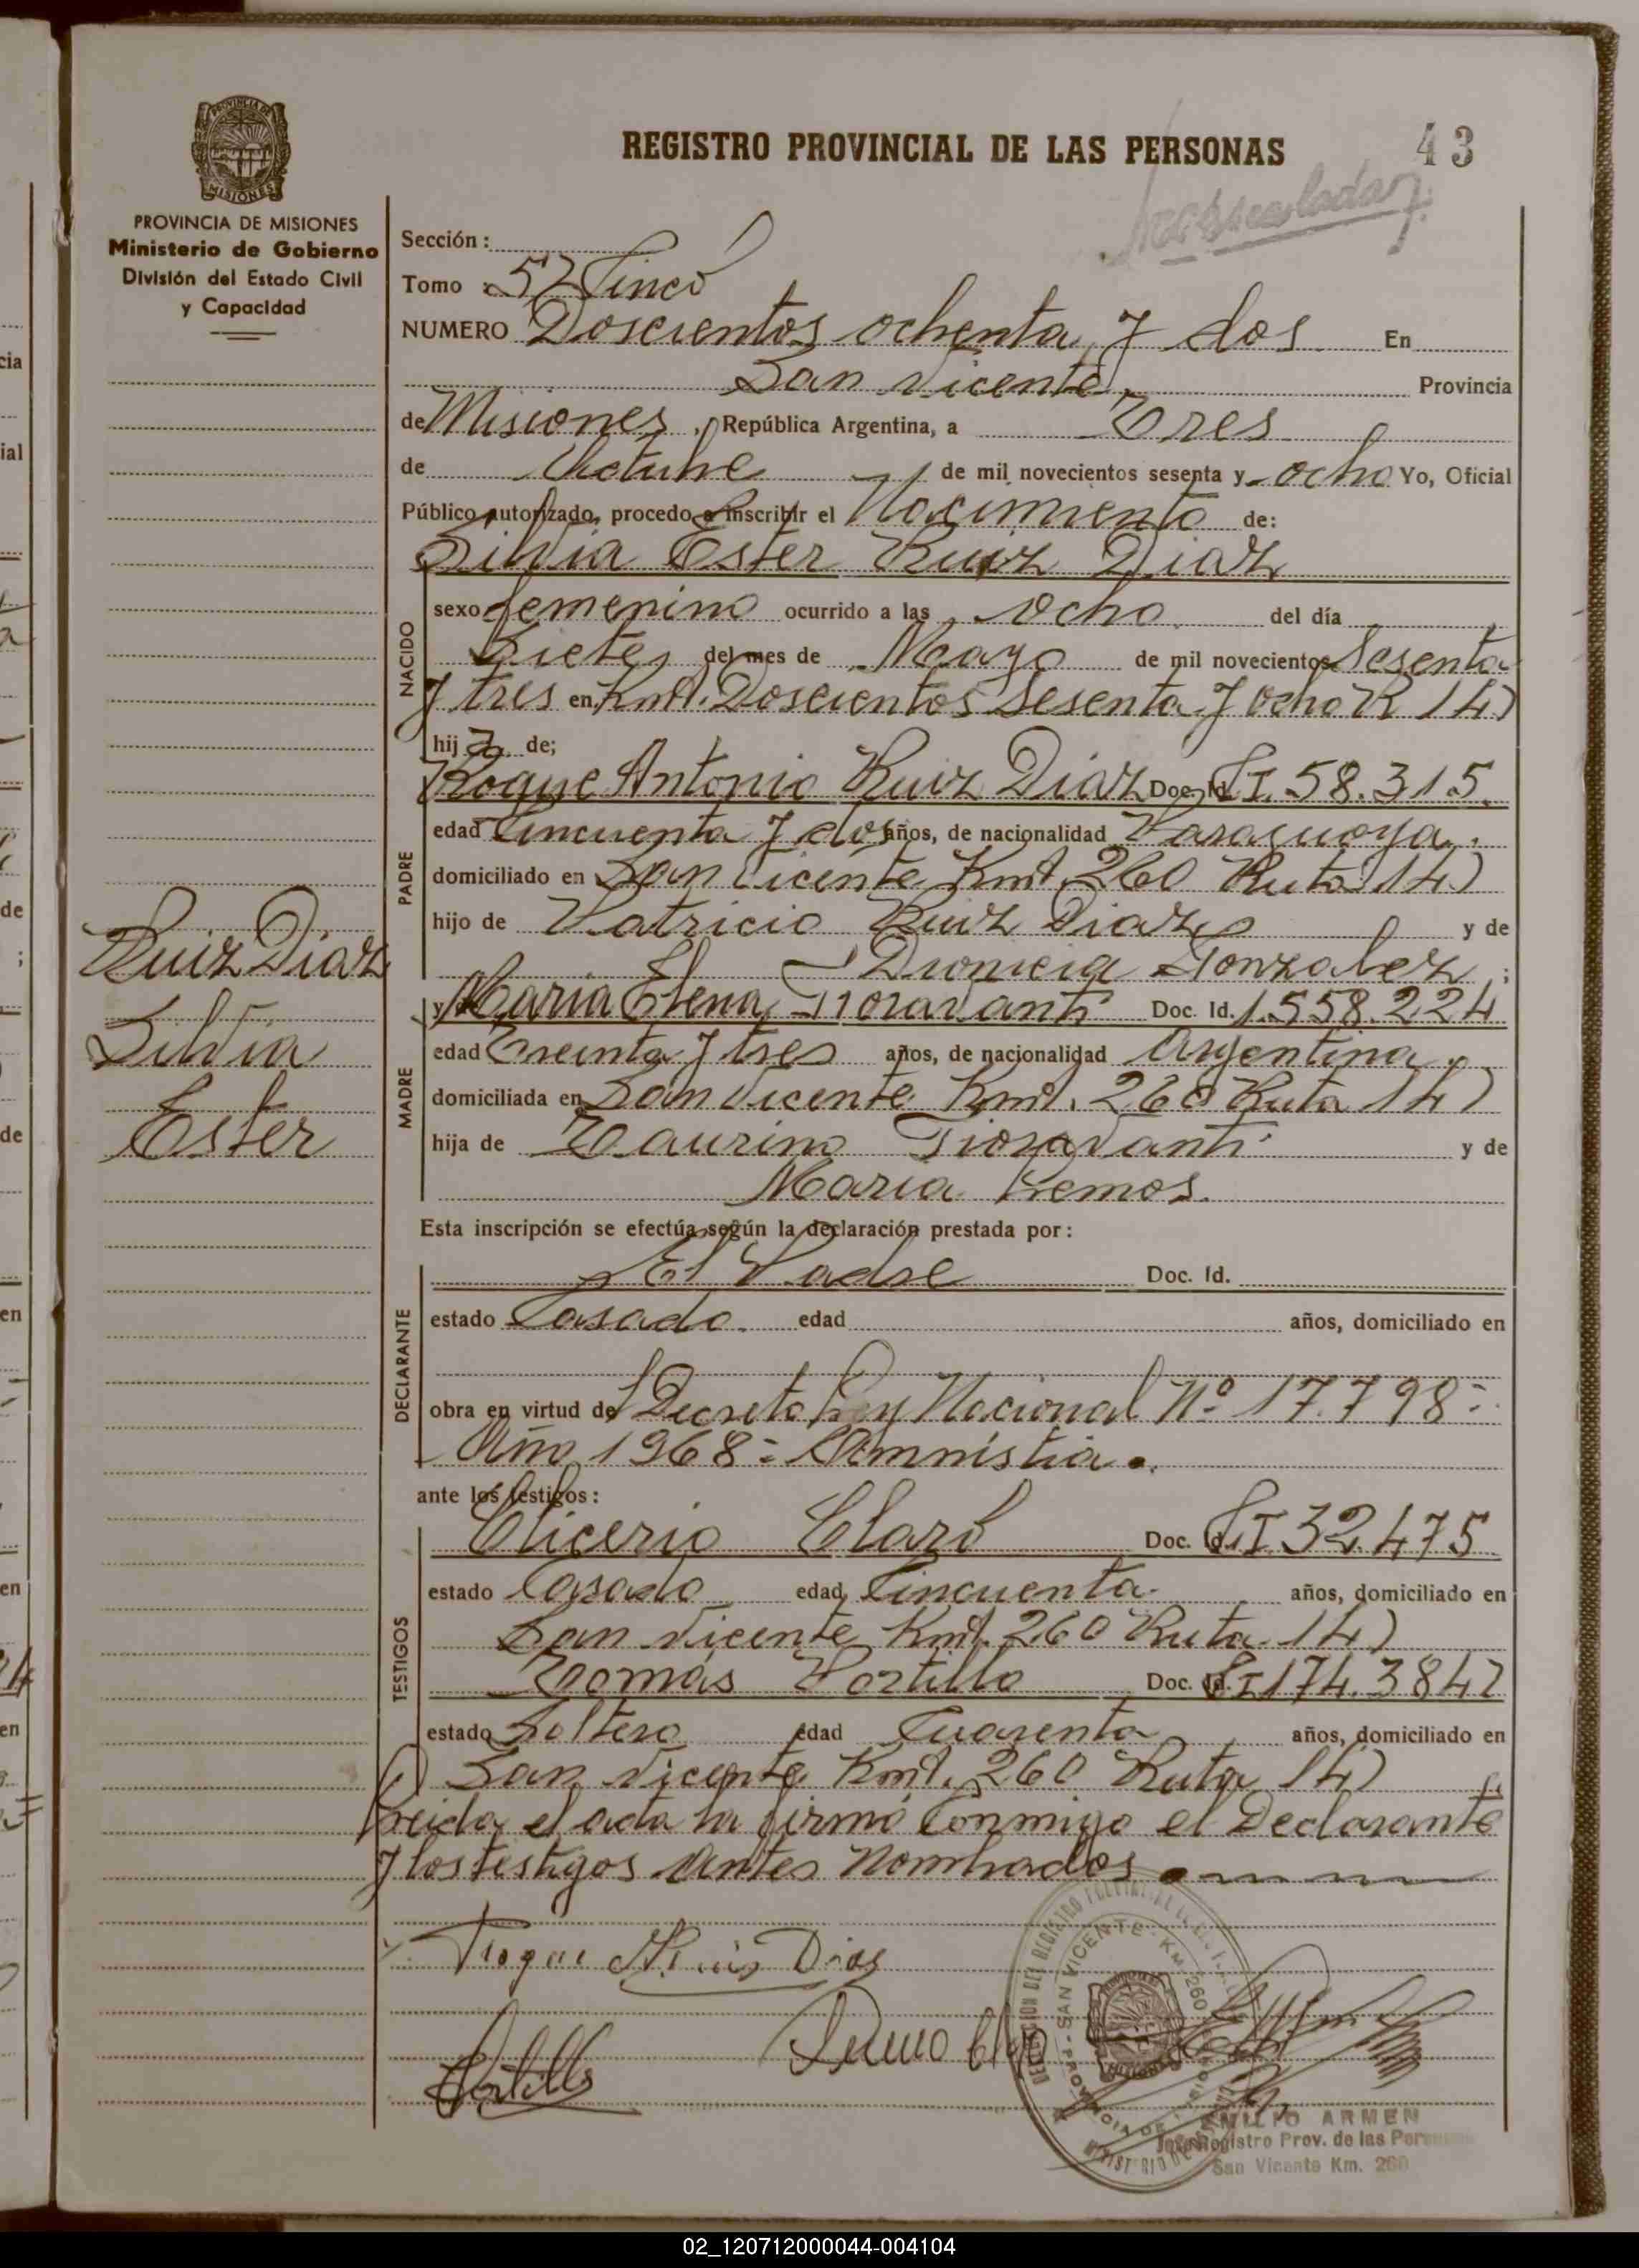 REGISTRO PROVINCIAL DE LAS PERSONAS
43
PROVINCIA DE MISIONES
Ministerio de Gobierno
División del Estado Civil
y Capacidad
Sección :
Tomo : 5 Cinco
NUMERO Doscientos ochenta y dos En
San Vicente, Provincia
de Misiones, República Argentina, a Tres
de Octubre de mil novecientos sesenta y ocho Yo, Oficial
Público autorizado, procedo a inscribir el Nacimiento de:
Silvia Ester Ruiz Diaz
NACIDO
sexo femenino ocurrido a las ocho del día
Siete del mes de Mayo de mil novecientos Sesenta
y tres en Kmt. Doscientos Sesenta y ocho R 14)
hij a de;
PADRE
Roque Antonio Ruiz Diaz Doc. Id. C.I. 58.315.
edad Cincuenta y dos años, de nacionalidad Paraguaya.
domiciliado en San Vicente Kmt. 260 Ruta 14)
hijo de Patricio Ruiz Diaz y de
Dionicia Gonzalez ;
MADRE
y de Maria Elena Fioravanti Doc. Id. 1.558.224
edad Treinta y tres años, de nacionalidad Argentina.
domiciliada en San Vicente Kmt. 260 Ruta 14)
hija de Taurino Fioravanti y de
Maria Lemos.
Esta inscripción se efectúa según la declaración prestada por :
DECLARANTE
El Padre Doc. Id.
estado Casado. edad años, domiciliado en
obra en virtud de Decreto Ley Nacional Nº 17.798=
Año 1968= Amnistia.
ante los testigos :
TESTIGOS
Clicerio Claro Doc. Id. C.I. 32.475
estado Casado edad Cincuenta años, domiciliado en
San Vicente Kmt. 260 Ruta 14)
Tomás Portillo Doc. Id. C.I 174.384)
estado Soltero edad Cuarenta años, domiciliado en
San Vicente Kmt. 260 Ruta 14)
Leida el acta la firmó Conmigo el Declarante
y los testigos Antes Nombrados.
Ruiz Diaz
Silvia
Ester
Roque Ruis Dias
Portillo
SAN VICENTE - KM 260
EMILIO ARMEN
Jefe Registro Prov. de las Personas
San Vicente Km. 260
02_120712000044-004104